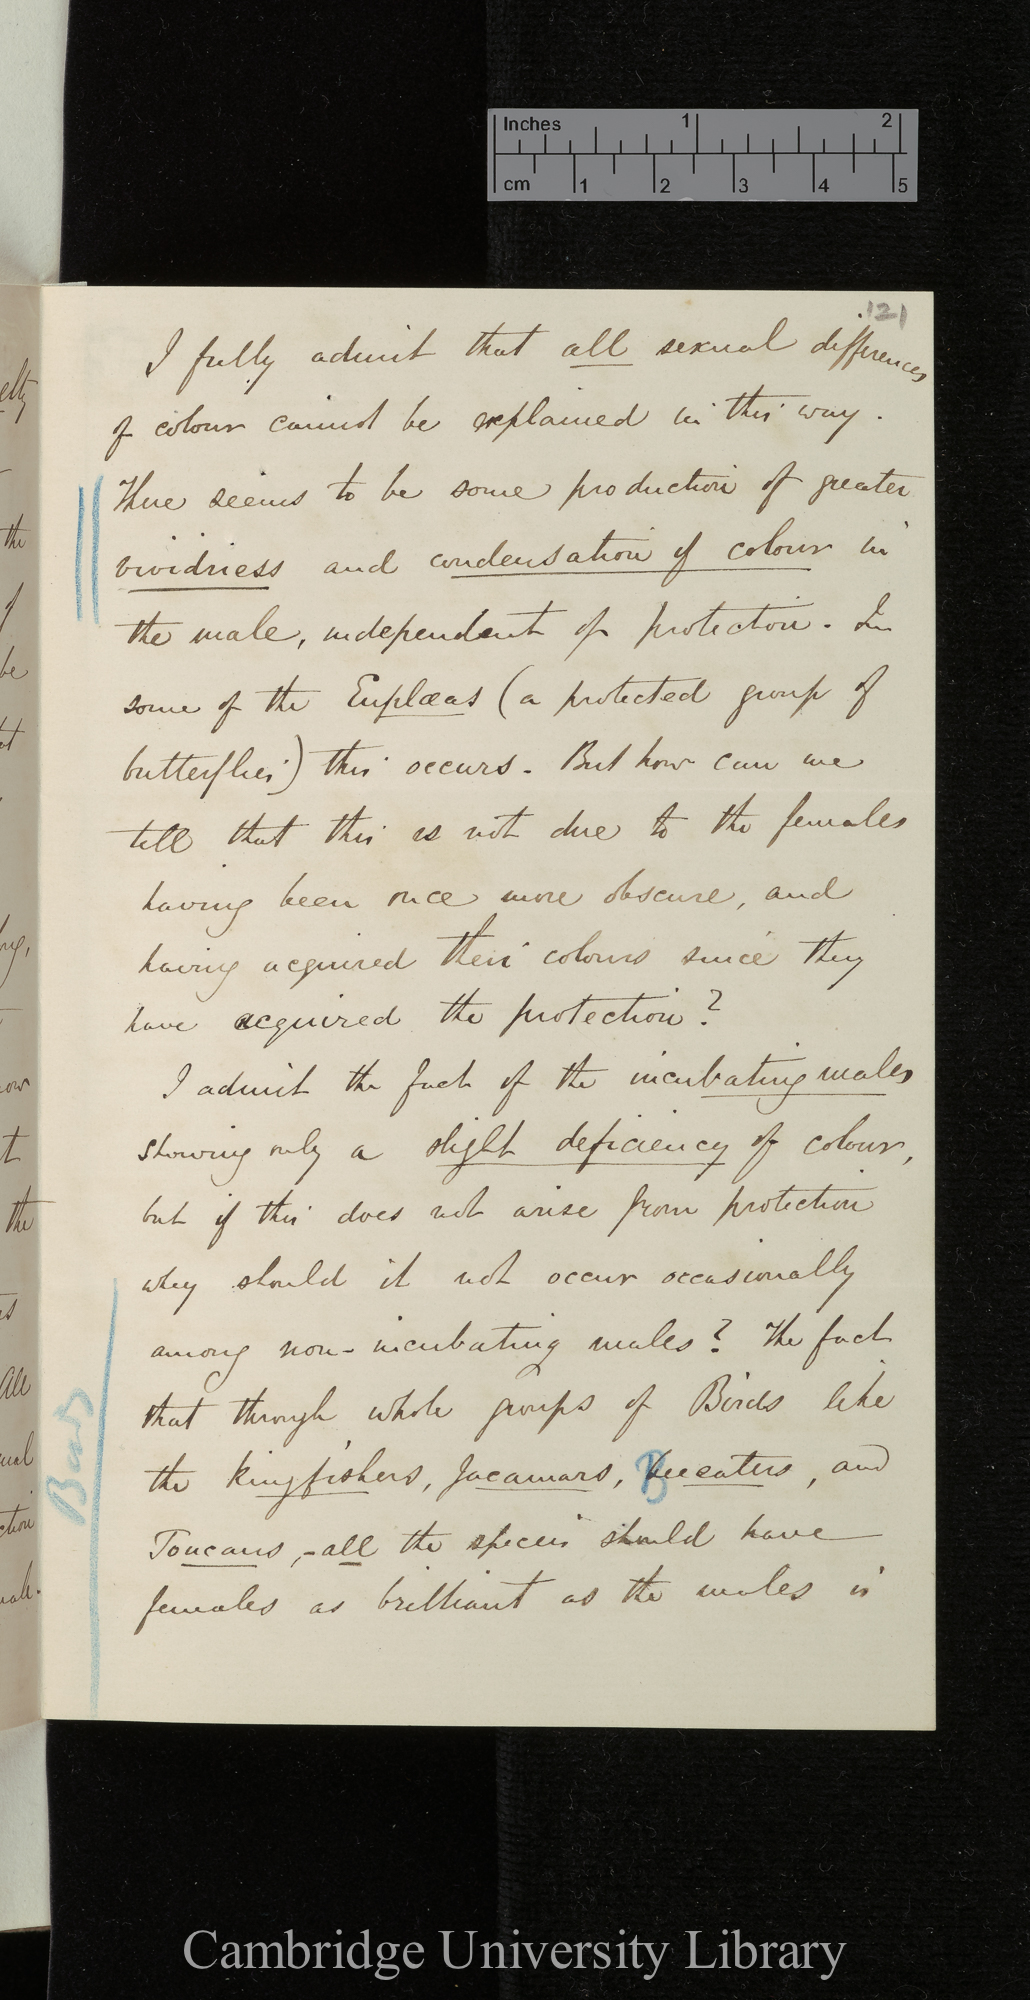 Inches 1 2
cm 1 2 3 4 5
121
I fully admit that all sexual differences
of colour cannot be explained in this way.
There seems to be some production of greater
vividness and condensation of colour in
the male, independent of protection. In
some of the Euplæas (a protected group of
butterflies) this occurs. But how can we
tell that this is not due to the females
having been once more obscure, and
having acquired their colours since they
have acquired the protection?
I admit the fact of the incubating males
showing only a slight deficiency of colour,
but if this does not arise from protection
why should it not occur occasionally
among non-incubating males? The fact
that through whole groups of Birds like
the kingfishers, Jacamars, Beeeaters, and
Toucans,-all the species should have
females as brilliant as the males is
Birds
Cambridge University Library